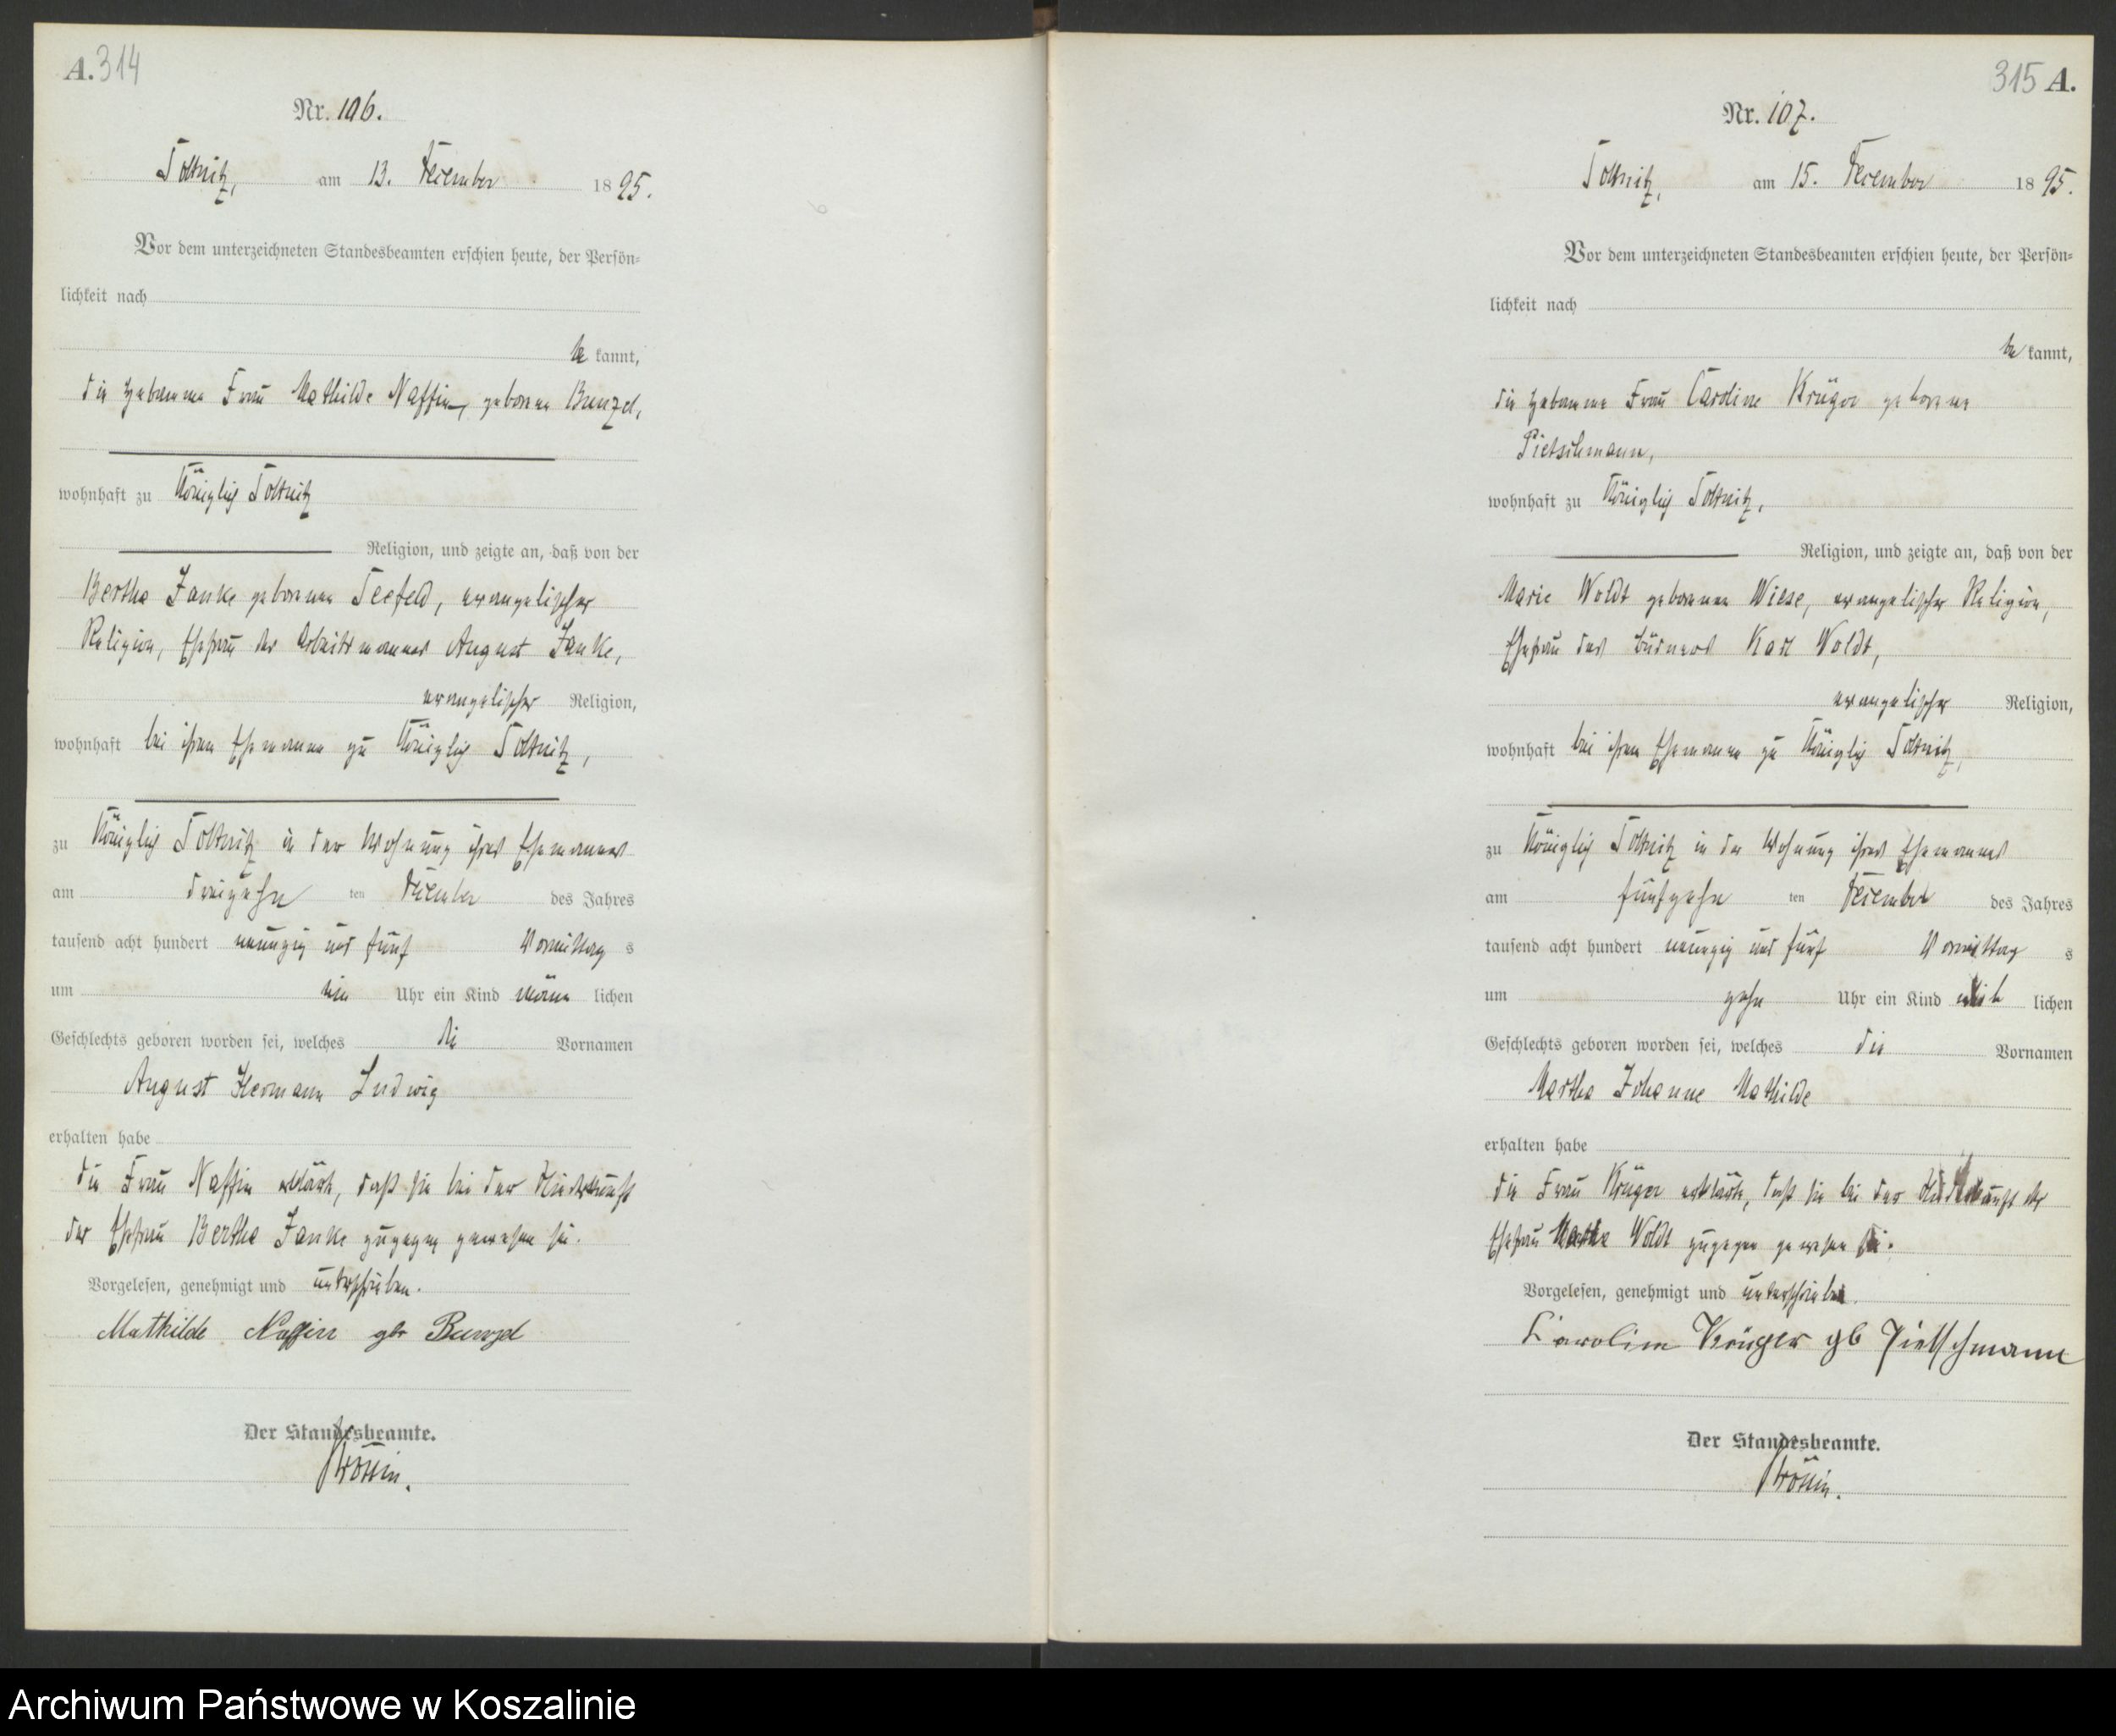 A. 314
Nr. 106.
Soltnitz, am 13. December 1895.
Vor dem unterzeichneten Standesbeamten erschien heute, der Persön-
lichkeit nach
be kannt,
die Hebamme Frau Mathilde Naffin, geborene Bunzel,
wohnhaft zu Königlich Soltnitz
Religion, und zeigte an, daß von der
Bertha Janke geborenen Seefeld, evangelischer
Religion, Ehefrau des Arbeitsmannes August Janke,
evangelischer Religion,
wohnhaft bei ihrem Ehemanne zu Königlich Soltnitz,
zu Königlich Soltnitz in der Wohnung ihres Ehemannes
am dreizehn ten December des Jahres
tausend acht hundert neunzig und fünf Vormittag s
um ein Uhr ein Kind männ lichen
Geschlechts geboren worden sei, welches die Vornamen
August Hermann Ludwig
erhalten habe
die Frau Naffin erklärte, daß sie bei der Niederkunft
der Ehefrau Bertha Janke zugegen gewesen sei.
Vorgelesen, genehmigt und unterschrieben.
Mathilde Naffin gb Bunzel
Der Standesbeamte.
315 A.
Nr. 107.
Soltnitz, am 15. December 1895.
Vor dem unterzeichneten Standesbeamten erschien heute, der Persön-
lichkeit nach
be kannt,
die Hebamme Frau Caroline Krüger geborene
Pietschmann,
wohnhaft zu Königlich Soltnitz,
Religion, und zeigte an, daß von der
Marie Woldt geborenen Wiese, evangelischer Religion,
Ehefrau des Büdners Karl Woldt,
evangelischer Religion,
wohnhaft bei ihrem Ehemanne zu Königlich Soltnitz,
zu Königlich Soltnitz in der Wohnung ihres Ehemannes
am fünfzehn ten December des Jahres
tausend acht hundert neunzig und fünf Vormittag s
um zehn Uhr ein Kind weib lichen
Geschlechts geboren worden sei, welches die Vornamen
Martha Johanne Mathilde
erhalten habe
die Frau Krüger erklärte, daß sie bei der Niederkunft der
Ehefrau Woldt zugegen gewesen sei.
Vorgelesen, genehmigt und unterschrieben.
Caroline Krüger gb Pietschmann
Der Standesbeamte.
Archiwum Państwowe w Koszalinie